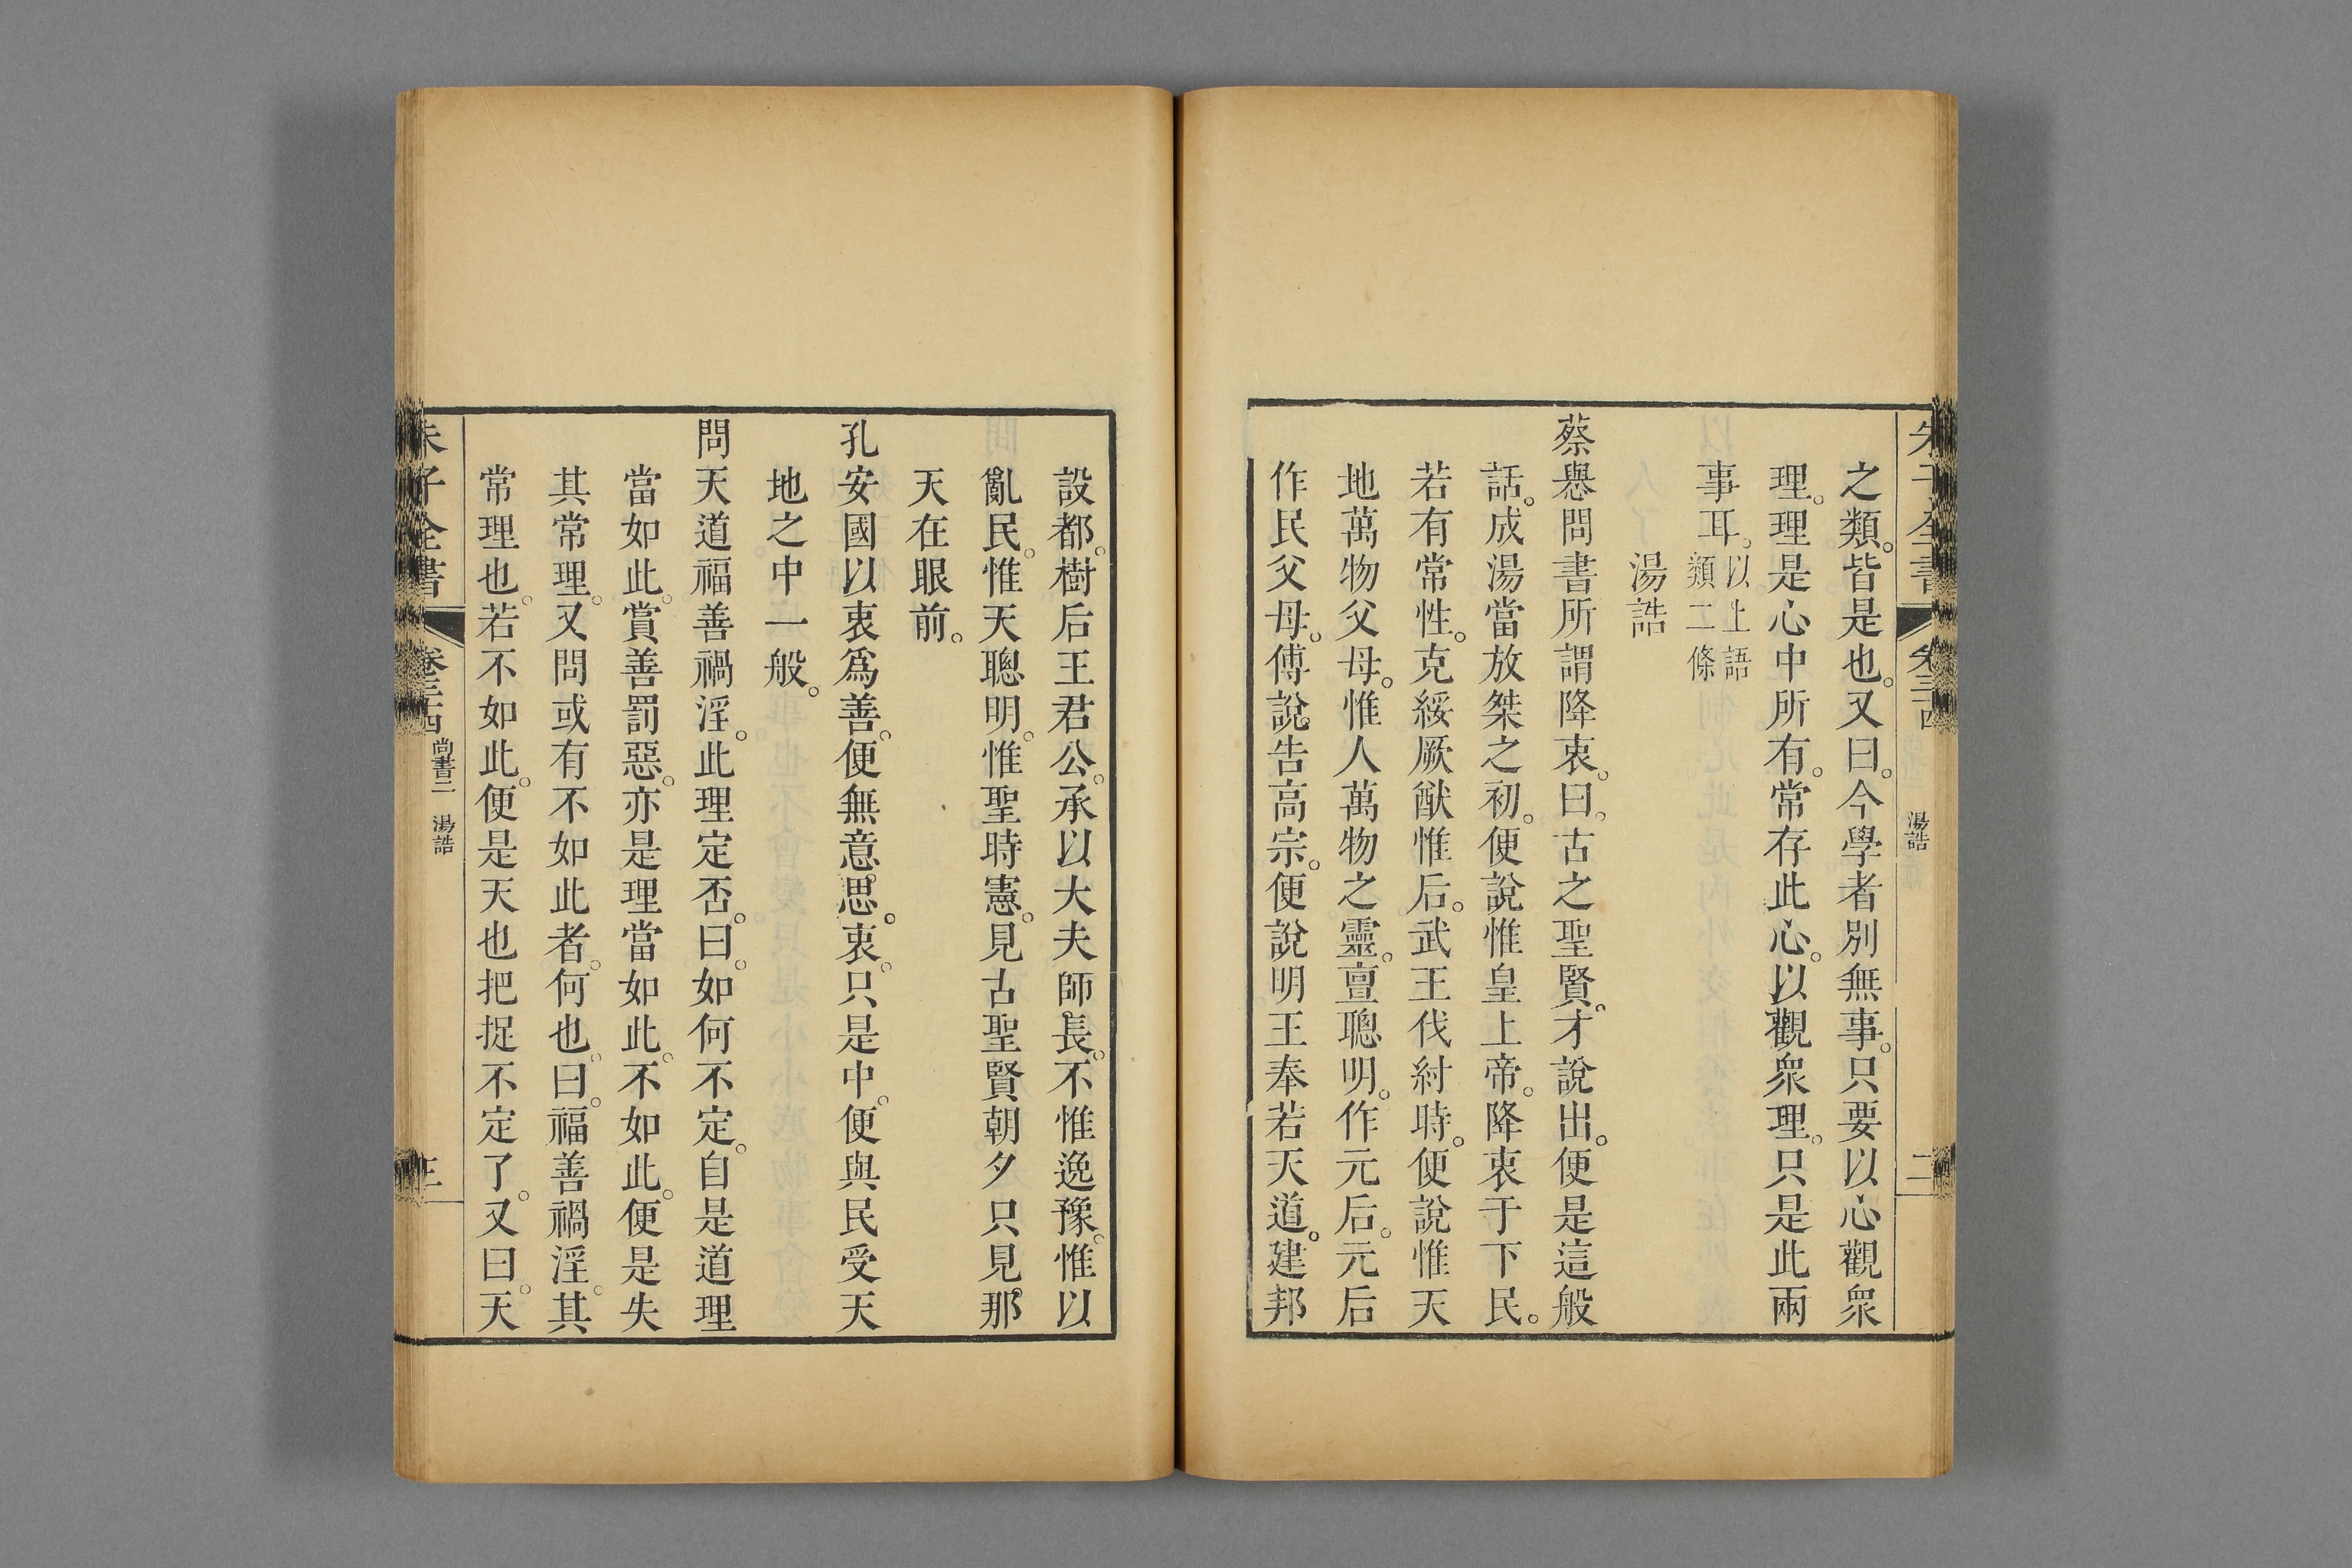 朱子全書 卷三十四 湯誥 二
之類。皆是也。又曰。今學者別無事。只要以心觀衆
理。理是心中所有。常存此心。以觀衆理。只是此兩
事耳。以上語類二條
湯誥
蔡㦛問書所謂降衷。曰。古之聖賢。才說出。便是這般
話。成湯當放桀之初。便說惟皇上帝。降衷于下民。
若有常性。克綏厥猷惟后。武王伐紂時。便說惟天
地萬物父母。惟人萬物之靈。亶聰明。作元后。元后
作民父母。傅說告高宗。便說明王奉若天道。建邦
設都。樹后王君公。承以大夫師長。不惟逸豫。惟以
亂民。惟天聰明。惟聖時憲。見古聖賢朝夕只見那
天在眼前。
孔安國以衷爲善。便無意思。衷。只是中。便與民受天
地之中一般。
問天道福善禍淫。此理定否。曰。如何不定。自是道理
當如此。賞善罰惡。亦是理當如此。不如此。便是失
其常理。又問或有不如此者。何也。曰。福善禍淫。其
常理也。若不如此。便是天也把捉不定了。又曰。天
朱子全書 卷三十四 尚書二 湯誥 三